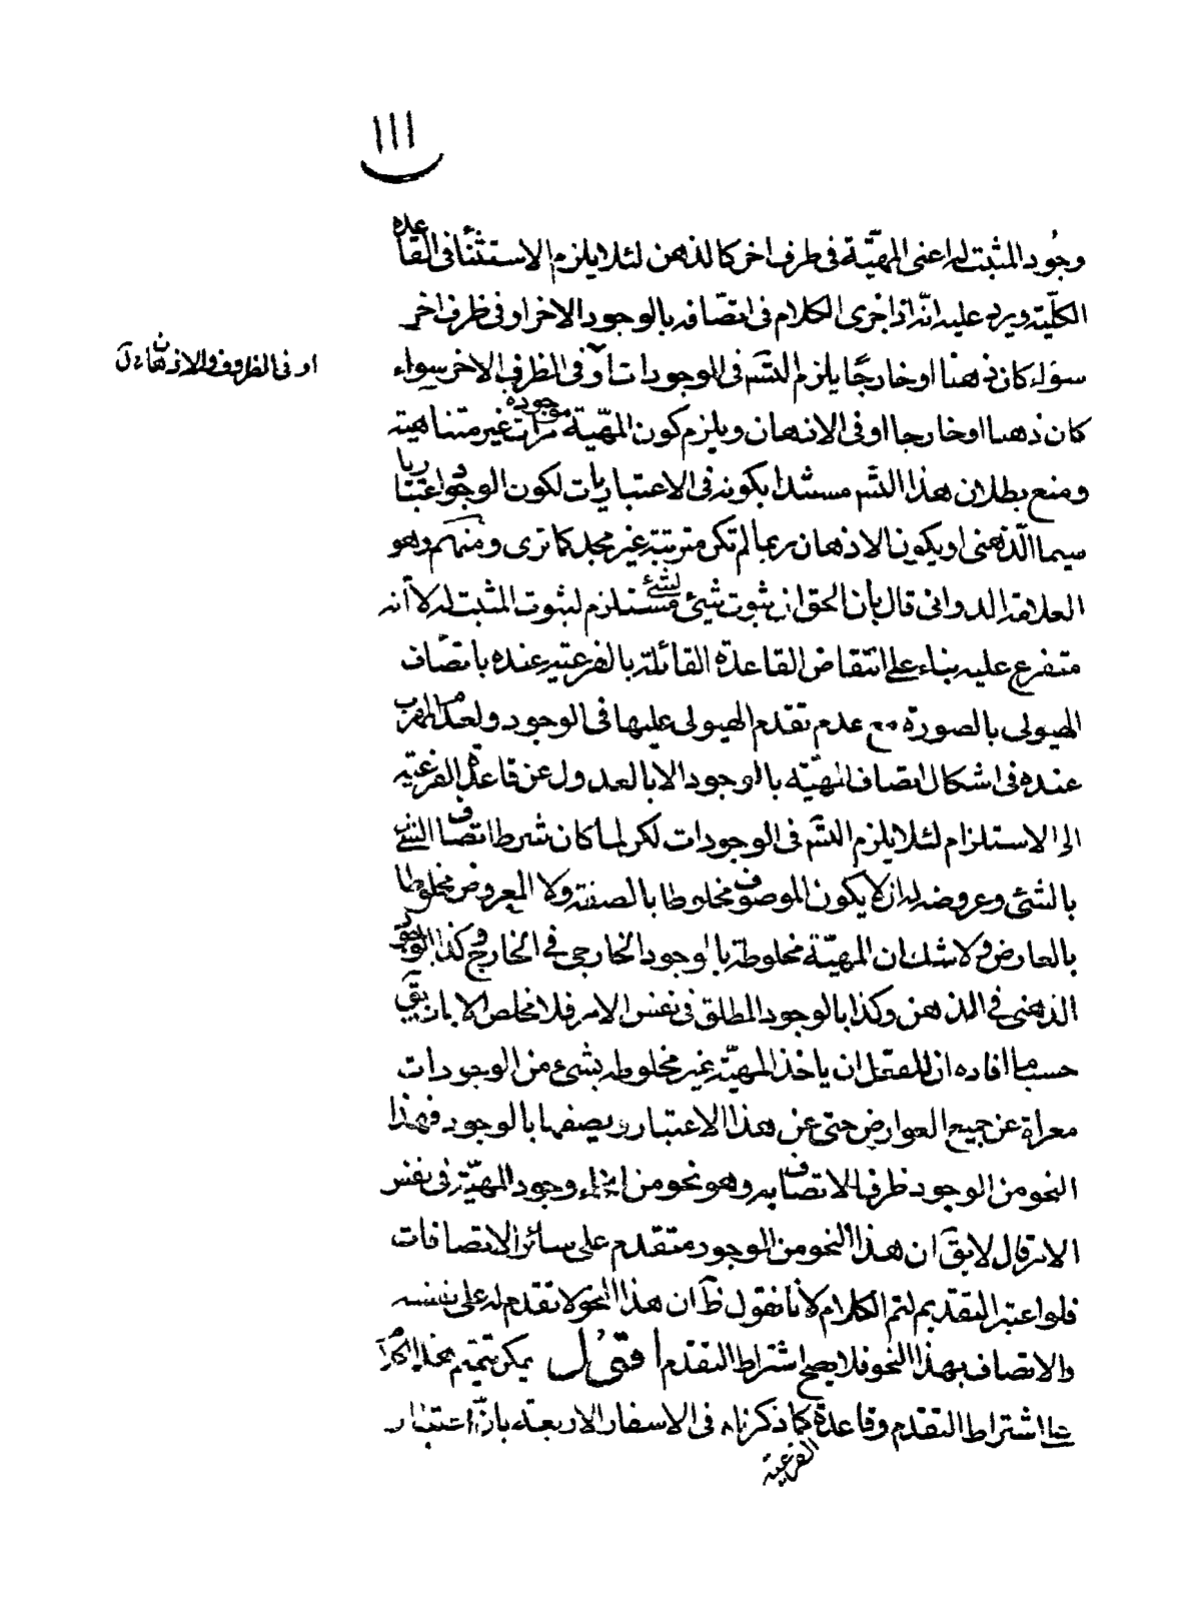 ١١١
وجُود المثبت له اعنى المهيّة فى ظرف اخر كالذهن لئلا يلزم الاستثناء فى القاعدة
الكلّية ويرد عليه انّه اذا جرى الكلام فى اتصّافه بالوجود الاخر او فى ظرف اخر
سواء كان ذهنا او خارجًا يلزم التسَم فى الوجودات آو فى الظرف الاخر سواء
او فى الظروف والاذهان
كان ذهنا او خارجا او فى الاذهان ويلزم كون المهّية موجودة مرات غير متناهية
ومنع بطلان هذا التسَم مستندا بكونه فى الاعتباريات لكون الوجود اعتباريا
سيما الذهنى او بكون الاذهان ربما لم تكن مترتبة غير مجد كما ترى ومنهم وهو
العلامة الدوانى قال بان الحق ان ثبوت شيئ لشئ مستلزم لثبوت المثبت له لا آنه
متفرع عليه بناء على انتقاض القاعدة القائلة بالفرعية عنده باتصّاف
الهيولى بالصورة مع عدم تقدّم الهيولى عليها فى الوجود ولعدم المهرب
عنده فى اشكال اتصاف المهيّة بالوجود الا بالعدول عن قاعدة الفرعيّة
الى الاستلزام لئلا يلزم التسَم فى الوجودات لكن لما كان شرط اتصاف الشئ
بالشئ وعروضه له ان لا يكون الموصوف مخلوطا بالصفة ولا المعروض مخلوطا
بالعارض ولا شك ان المهيّة مخلوطة بالوجود الخارجى فى الخارج وكذا بالوجود
الذهنى فى الذهن وكذا بالوجود المطلق فى نفس الامر فلا مخلص الا بان يقَ
حسبما افاده ان للعقل ان ياخذ المهيّة غير مخلوطه بشئ من الوجودات
معراة عن جميع العوارض حتى عن هذا الاعتبار ويصفها بالوجود فهذا
النحو من الوجود ظرف الاتصاف به وهو نحو من انحاء وجود المهيّة فى نفس
الامر قال لا يقَ ان هذا النحو من الوجود متقدم على سائر الاتصافات
فلو اعتبر التقديم لتم الكلام لانا نقول ظَ ان هذا النحو لا تقدم له على نفسه
والاتصاف بهذا النحو فلا يصح اشتراط التقدم اقُول يمكن تتميم هذا الكلام
على اشتراط التقدم وقاعدة الفرعية كما ذكرناه فى الاسفار الاربعة بانّ اعتبار